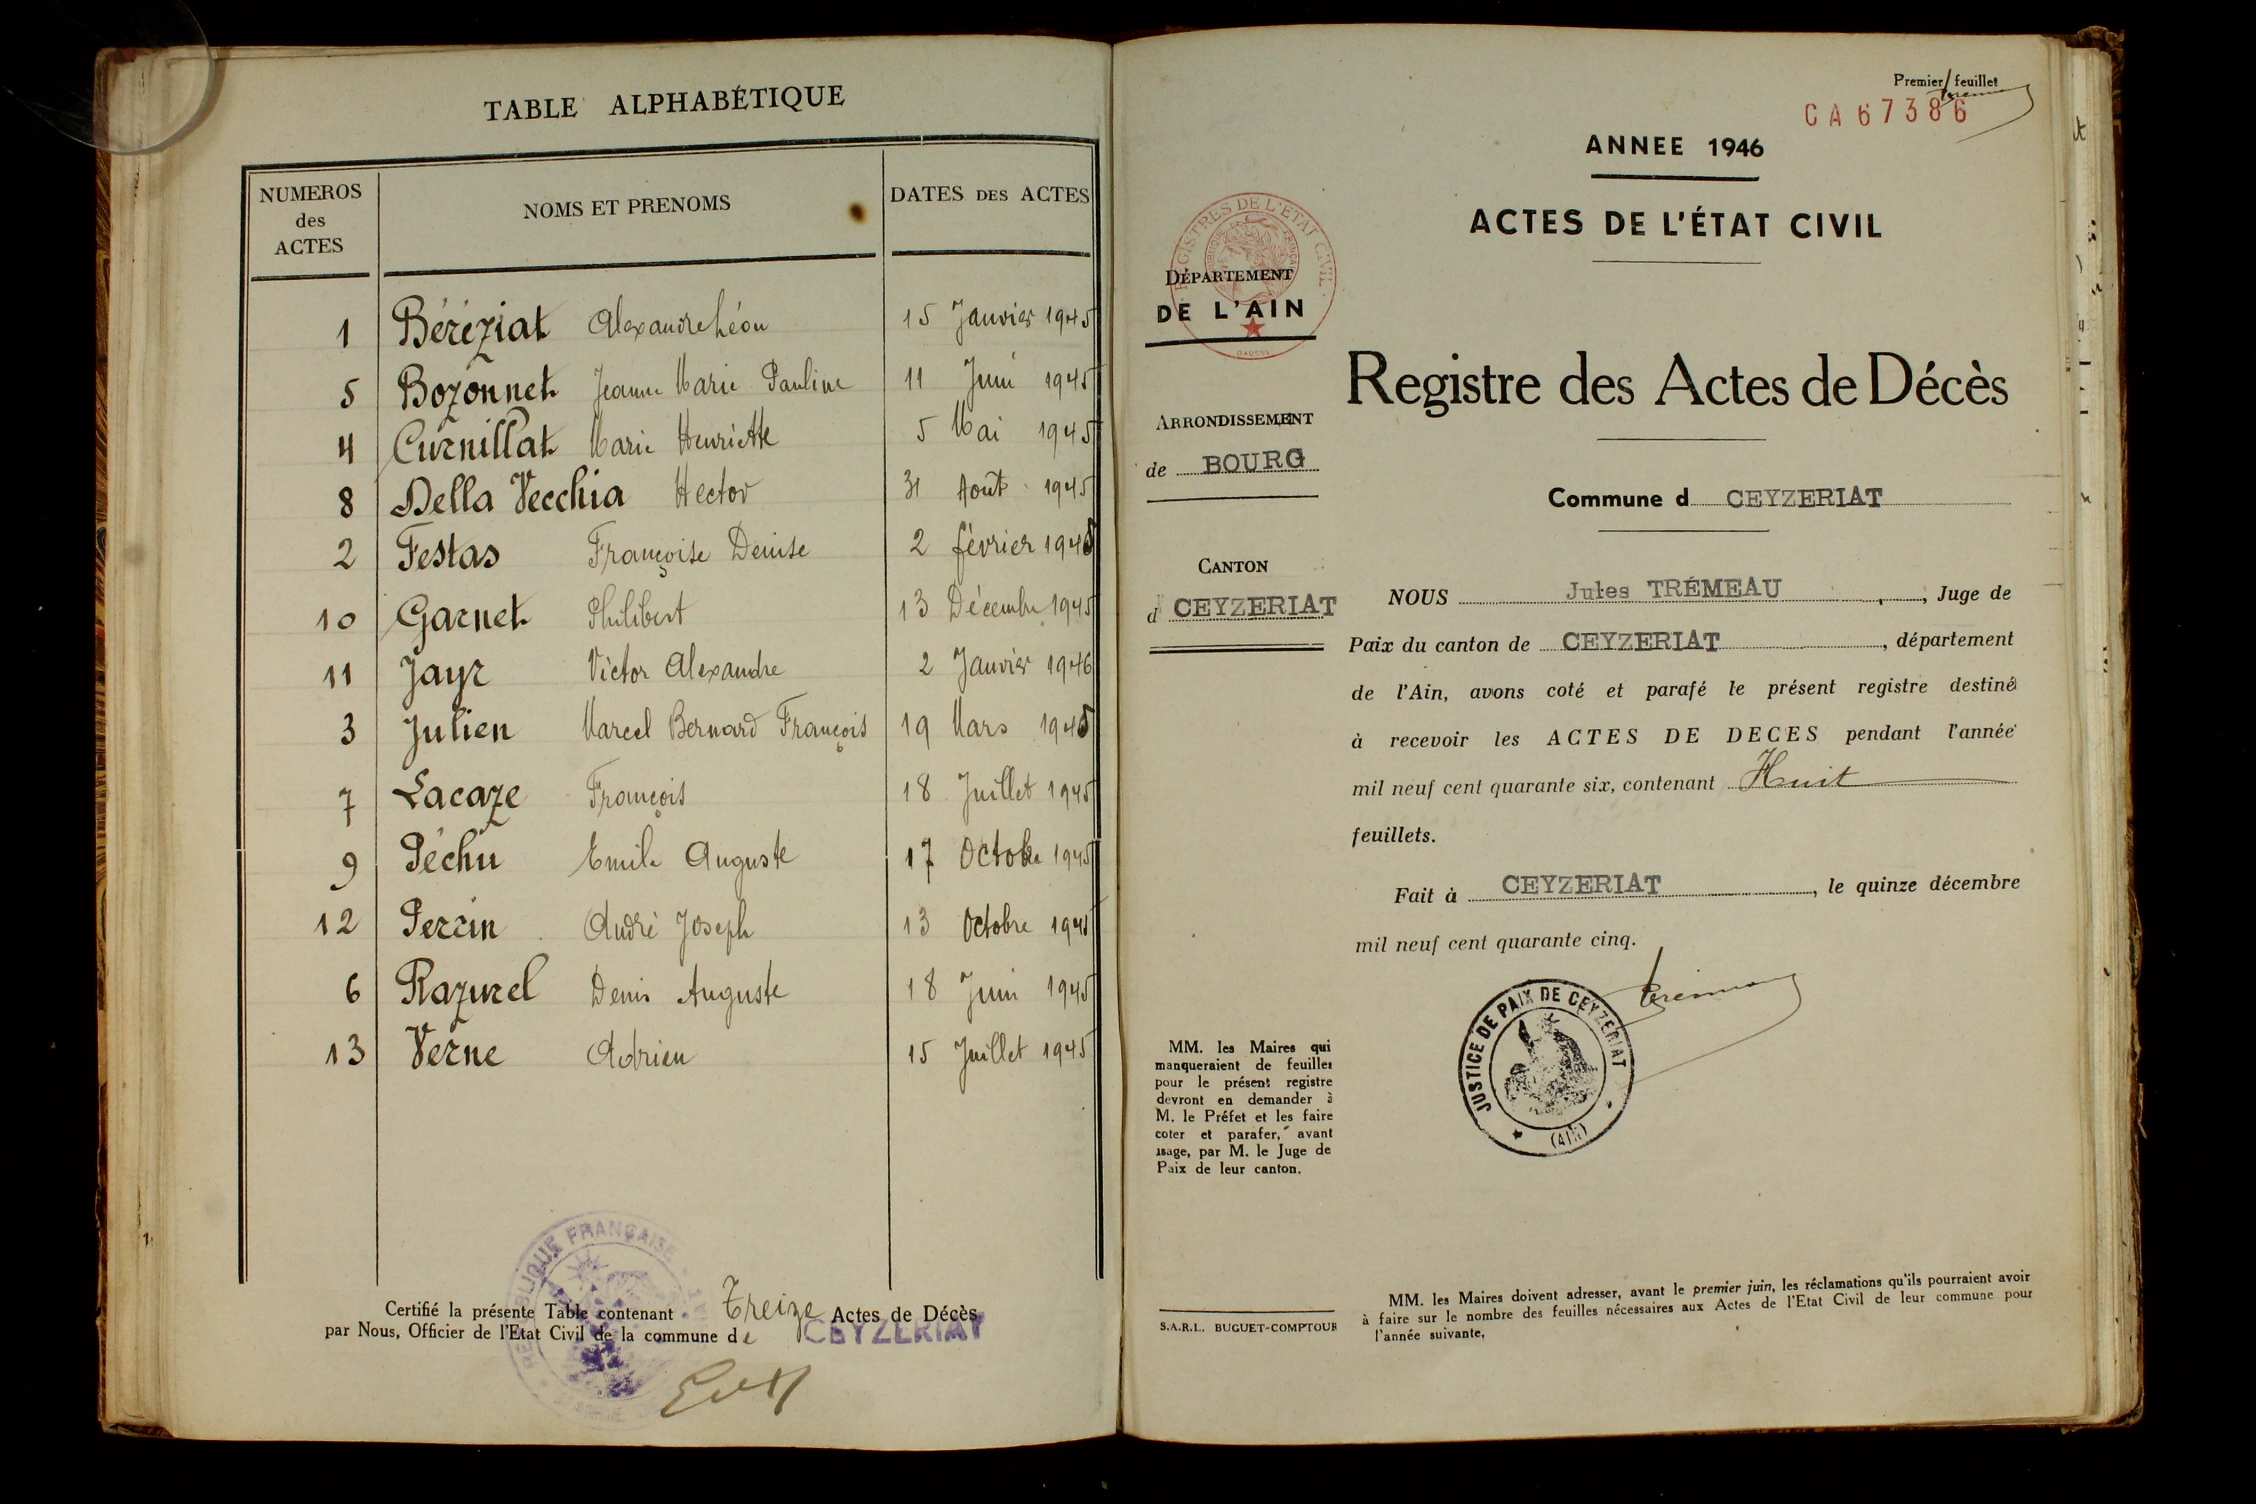 TABLE ALPHABÉTIQUE
NUMEROS des ACTES NOMS ET PRENOMS DATES DES ACTES
1 Béréziat Alexandre Léon 15 Janvier 1945
5 Bozonnet Jeanne Marie Pauline 11 Juin 1945
4 Curnillat Marie Henriette 5 Mai 1945
8 Della Vecchia Hector 31 Août 1945
2 Festas Françoise Denise 2 février 1945
10 Garnet Philibert 13 Décembre 1945
11 Jayr Victor Alexandre 2 Janvier 1946
3 Julien Marcel Bernard François 19 Mars 1945
7 Lacaze François 18 Juillet 1945
9 Péchu Emile Auguste 17 Octobre 1945
12 Perrin André Joseph 13 Octobre 1945
6 Razurel Denis Auguste 18 Juin 1945
13 Verne Adrien 15 Juillet 1945
Certifié la présente Table contenant Treize Actes de Décès
par Nous, Officier de l'Etat Civil de la commune de CEYZERIAT
RÉPUBLIQUE FRANÇAISE
Premier feuillet
CA67386
ANNEE 1946
ACTES DE L'ÉTAT CIVIL
REGISTRES DE L'ETAT CIVIL
DÉPARTEMENT
DE L'AIN
Registre des Actes de Décès
ARRONDISSEMENT
de BOURG
Commune d CEYZERIAT
CANTON
d CEYZERIAT
NOUS Jules TRÉMEAU, Juge de
Paix du canton de CEYZERIAT, département
de l'Ain, avons coté et parafé le présent registre destiné
à recevoir les ACTES DE DECES pendant l'année
mil neuf cent quarante six, contenant Huit
feuillets.
Fait à CEYZERIAT, le quinze décembre
mil neuf cent quarante cinq.
JUSTICE DE PAIX DE CEYZERIAT
(AIN)
MM. les Maires qui
manqueraient de feuilles
pour le présent registre
devront en demander à
M. le Préfet et les faire
coter et parafer, avant
usage, par M. le Juge de
Paix de leur canton.
S.A.R.L. BUGUET-COMPTOUR
MM. les Maires doivent adresser, avant le premier juin, les réclamations qu'ils pourraient avoir
à faire sur le nombre des feuilles nécessaires aux Actes de l'Etat Civil de leur commune pour
l'année suivante.